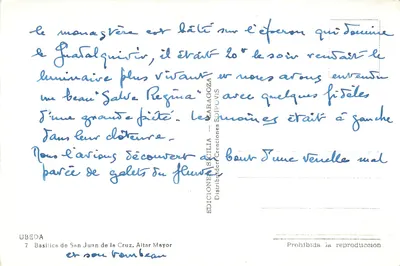 le monastère est bâti sur l'éperon qui domine
le Guadalquivir, il était 20h le soir rendait le
luminaire plus vivant et nous avons entendu
un beau "Salve Regina" avec quelques fidèles
d'une grande piété. Les moines était à gauche
dans leur cloture.
Nous l'avions découvert au bout d'une venelle mal
pavée de galets du fleuve
UBEDA
7 Basílica de San Juan de la Cruz, Altar Mayor
et son tombeau
EDICIONES SICILIA ZARAGOZA
Prohibida la reproducción